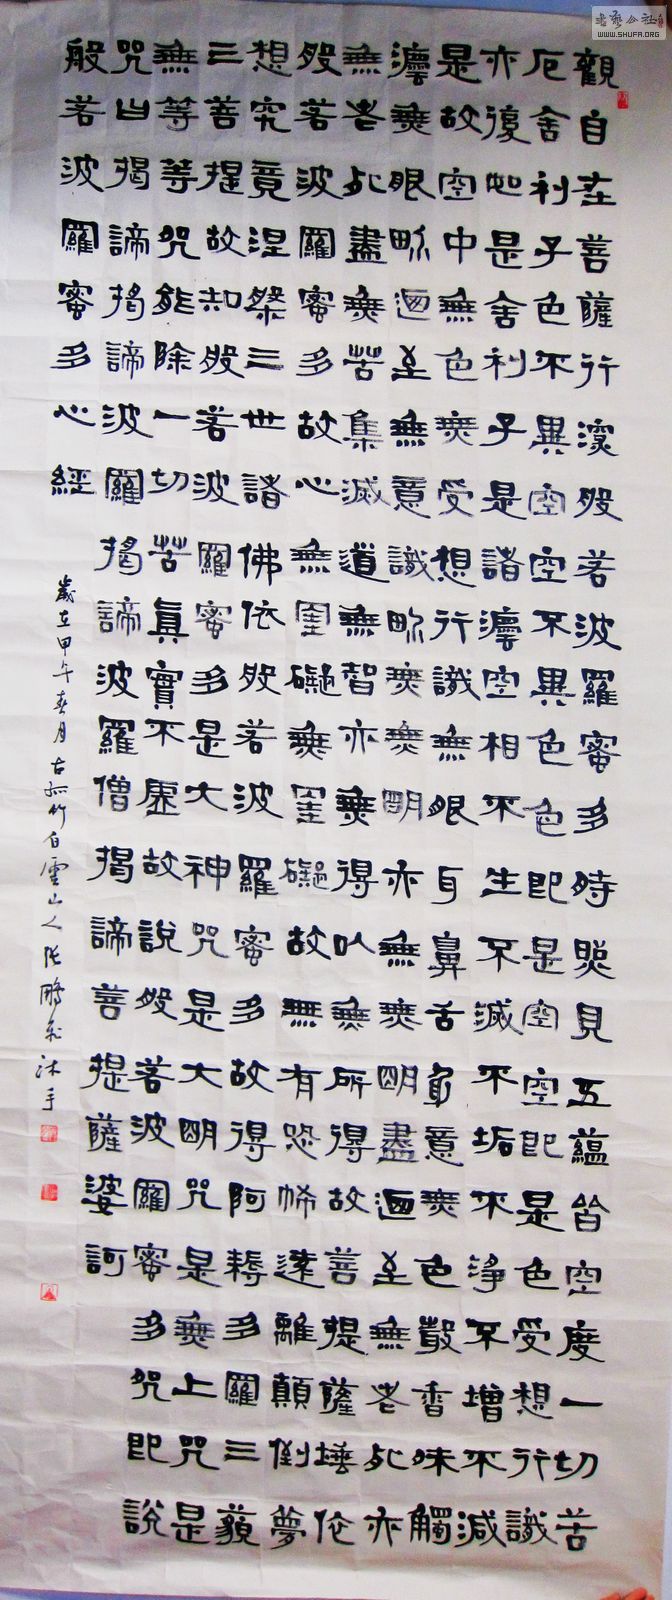 書藝公社
WWW.SHUFA.ORG
觀自在菩薩行深般若波羅蜜多時照見五蘊皆空度一切苦
厄舍利子色不異空空不異色色即是空空即是色受想行識
亦復如是舍利子是諸灋空相不生不滅不垢不淨不增不減
是故空中無色無受想行識無眼耳鼻舌身意無色聲香味觸
灋無眼界迺至無意識界無無明亦無無明盡迺至無老死亦
無老死盡無苦集滅道無智亦無得以無所得故菩提薩埵依
般若波羅蜜多故心無罣礙無罣礙故無有恐怖遠離顛倒夢
想究竟涅槃三世諸佛依般若波羅蜜多故得阿耨多羅三藐
三菩提故知般若波羅蜜多是大神咒是大明咒是無上咒是
無等等咒能除一切苦真實不虛故說般若波羅蜜多咒即說
咒曰揭諦揭諦波羅揭諦波羅僧揭諦菩提薩婆訶
般若波羅蜜多心經
歲在甲午春月古孤竹白雲山人張鵬飛沐手